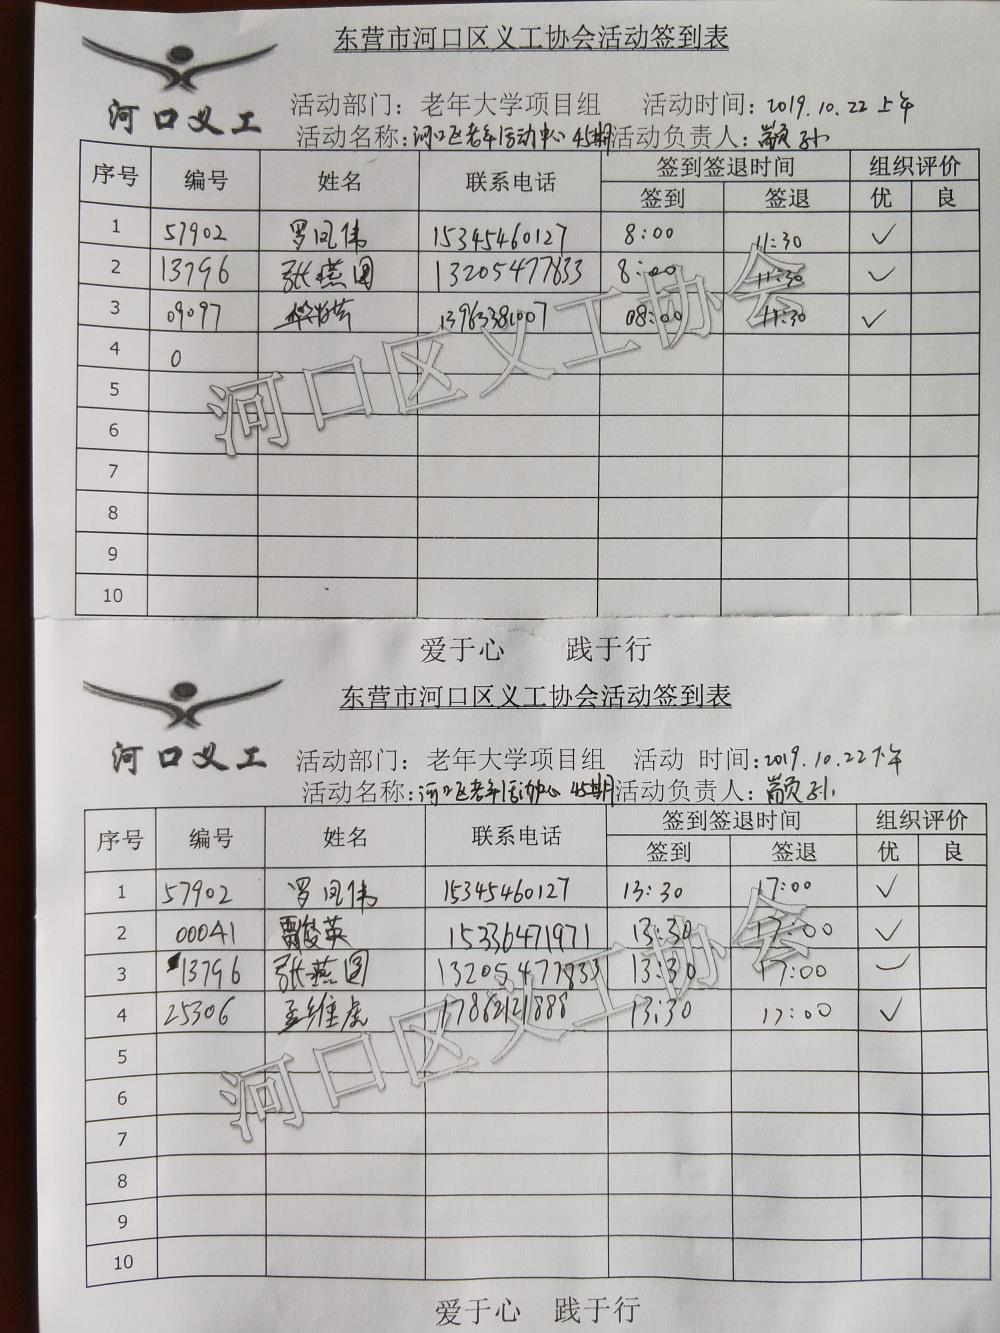 东营市河口区义工协会活动签到表
河口义工
活动部门：老年大学项目组 活动时间：2019.10.22上午
活动名称：河口区老年活动中心45期 活动负责人：
序号 编号 姓名 联系电话 签到签退时间 组织评价
签到 签退 优 良
1 57902 罗凤伟 15345460127 8:00 11:30 ✓
2 13796 张燕图 13205477833 8:00 11:30 ✓
3 09097 13963381007 08:00 11:30 ✓
4 0
5
6
7
8
9
10
河口区义工协会
爱于心 践于行
东营市河口区义工协会活动签到表
河口义工
活动部门：老年大学项目组 活动 时间：2019.10.22下午
活动名称：河口区老年活动中心45期 活动负责人：
序号 编号 姓名 联系电话 签到签退时间 组织评价
签到 签退 优 良
1 57902 罗凤伟 15345460127 13:30 17:00 ✓
2 00041 贾俊英 15336471971 13:30 17:00 ✓
3 13796 张燕图 13205477833 13:30 17:00 ✓
4 25306 孟维虎 17862121888 13:30 17:00 ✓
5
6
7
8
9
10
河口区义工协会
爱于心 践于行